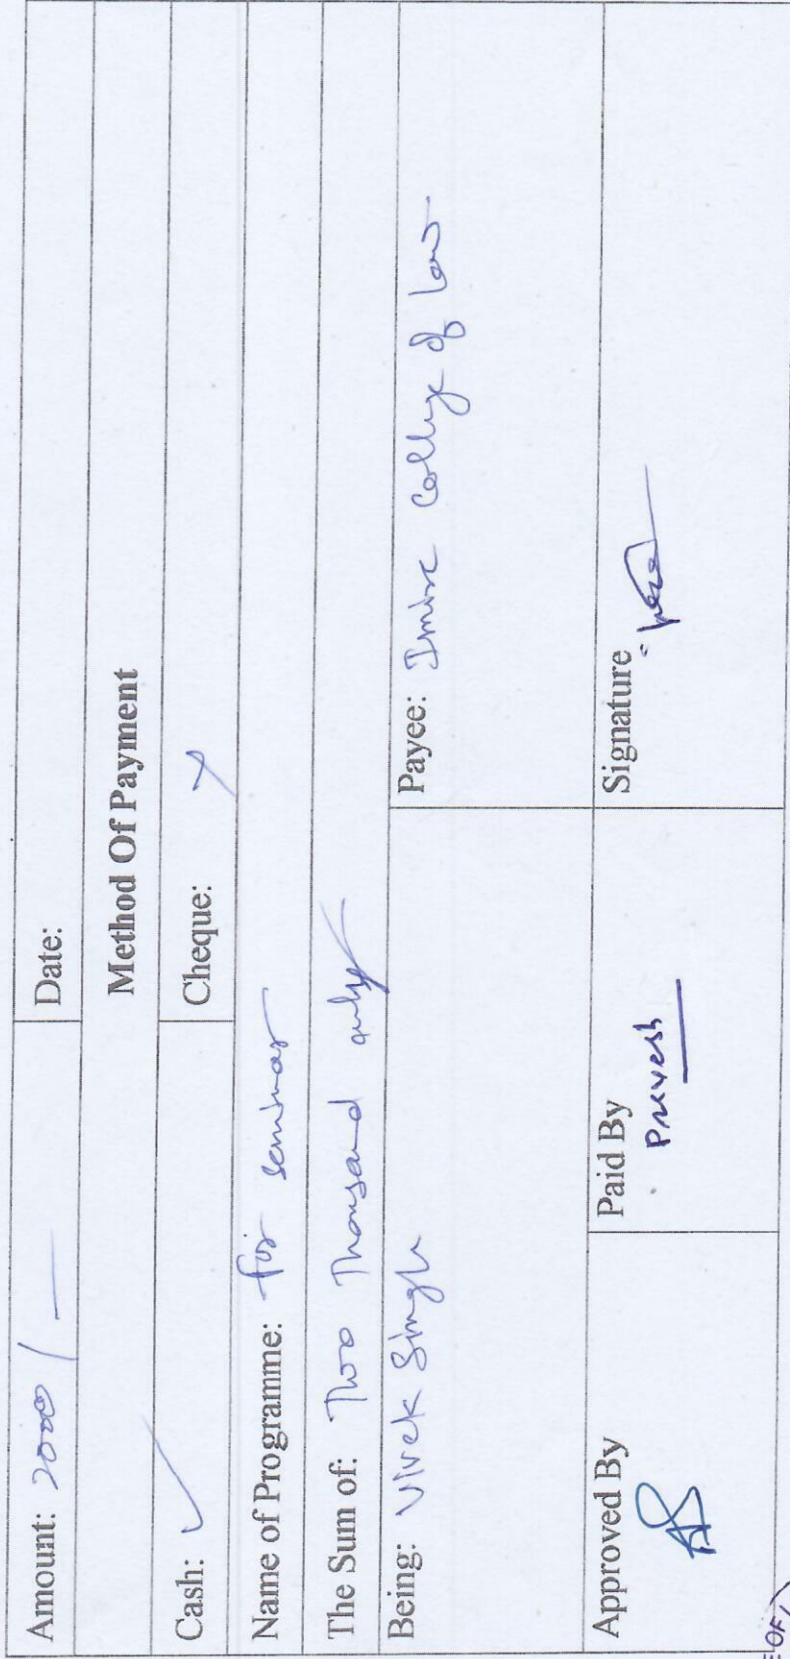 Amount: 2000/- Date:
Method Of Payment
Cash: ✓ Cheque: ✗
Name of Programme: for seminar
The Sum of: Two Thousand only
Being: Vivek Singh Payee: College of law
Approved By Paid By Signature
Pravesh